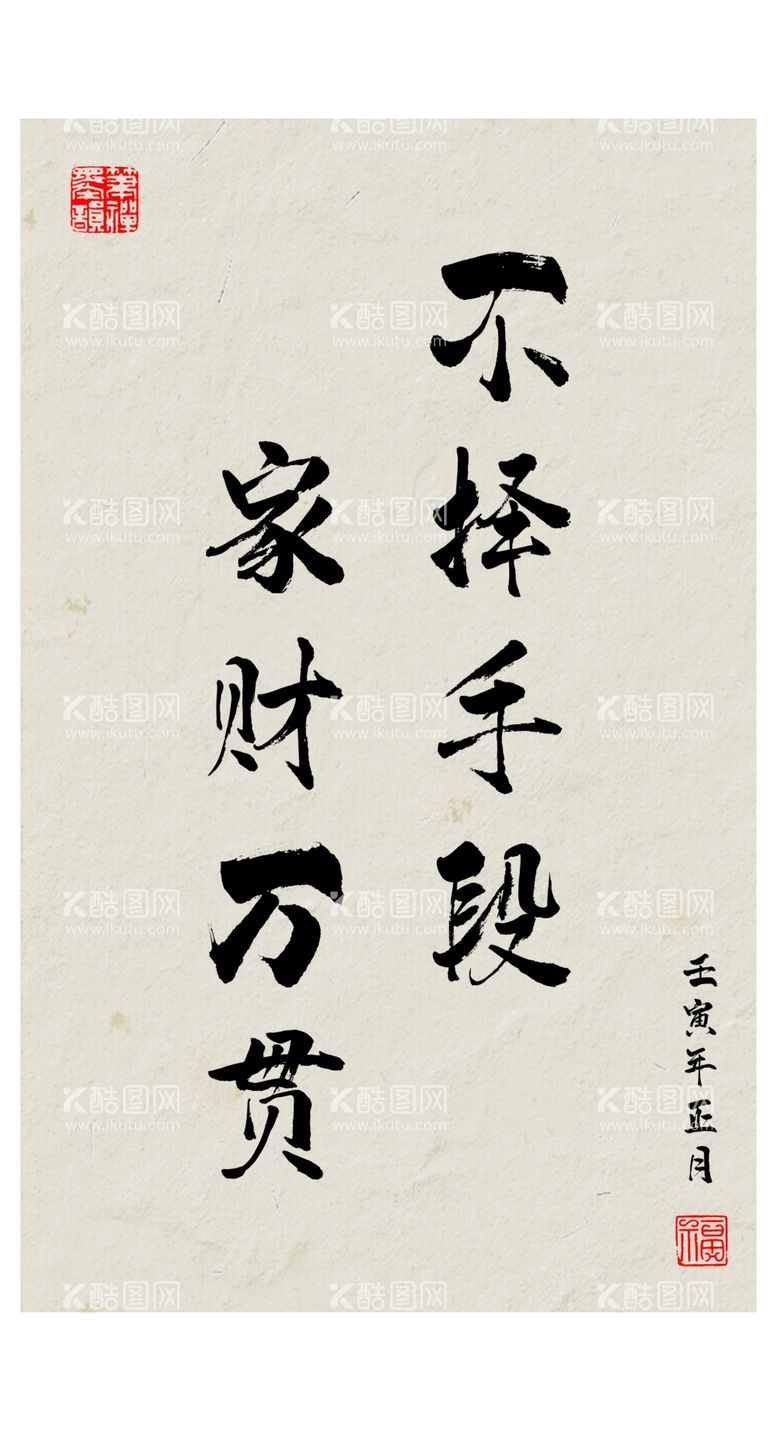 不择手段
家财万贯
壬寅年正月
福
K酷图网
www.ikutu.com